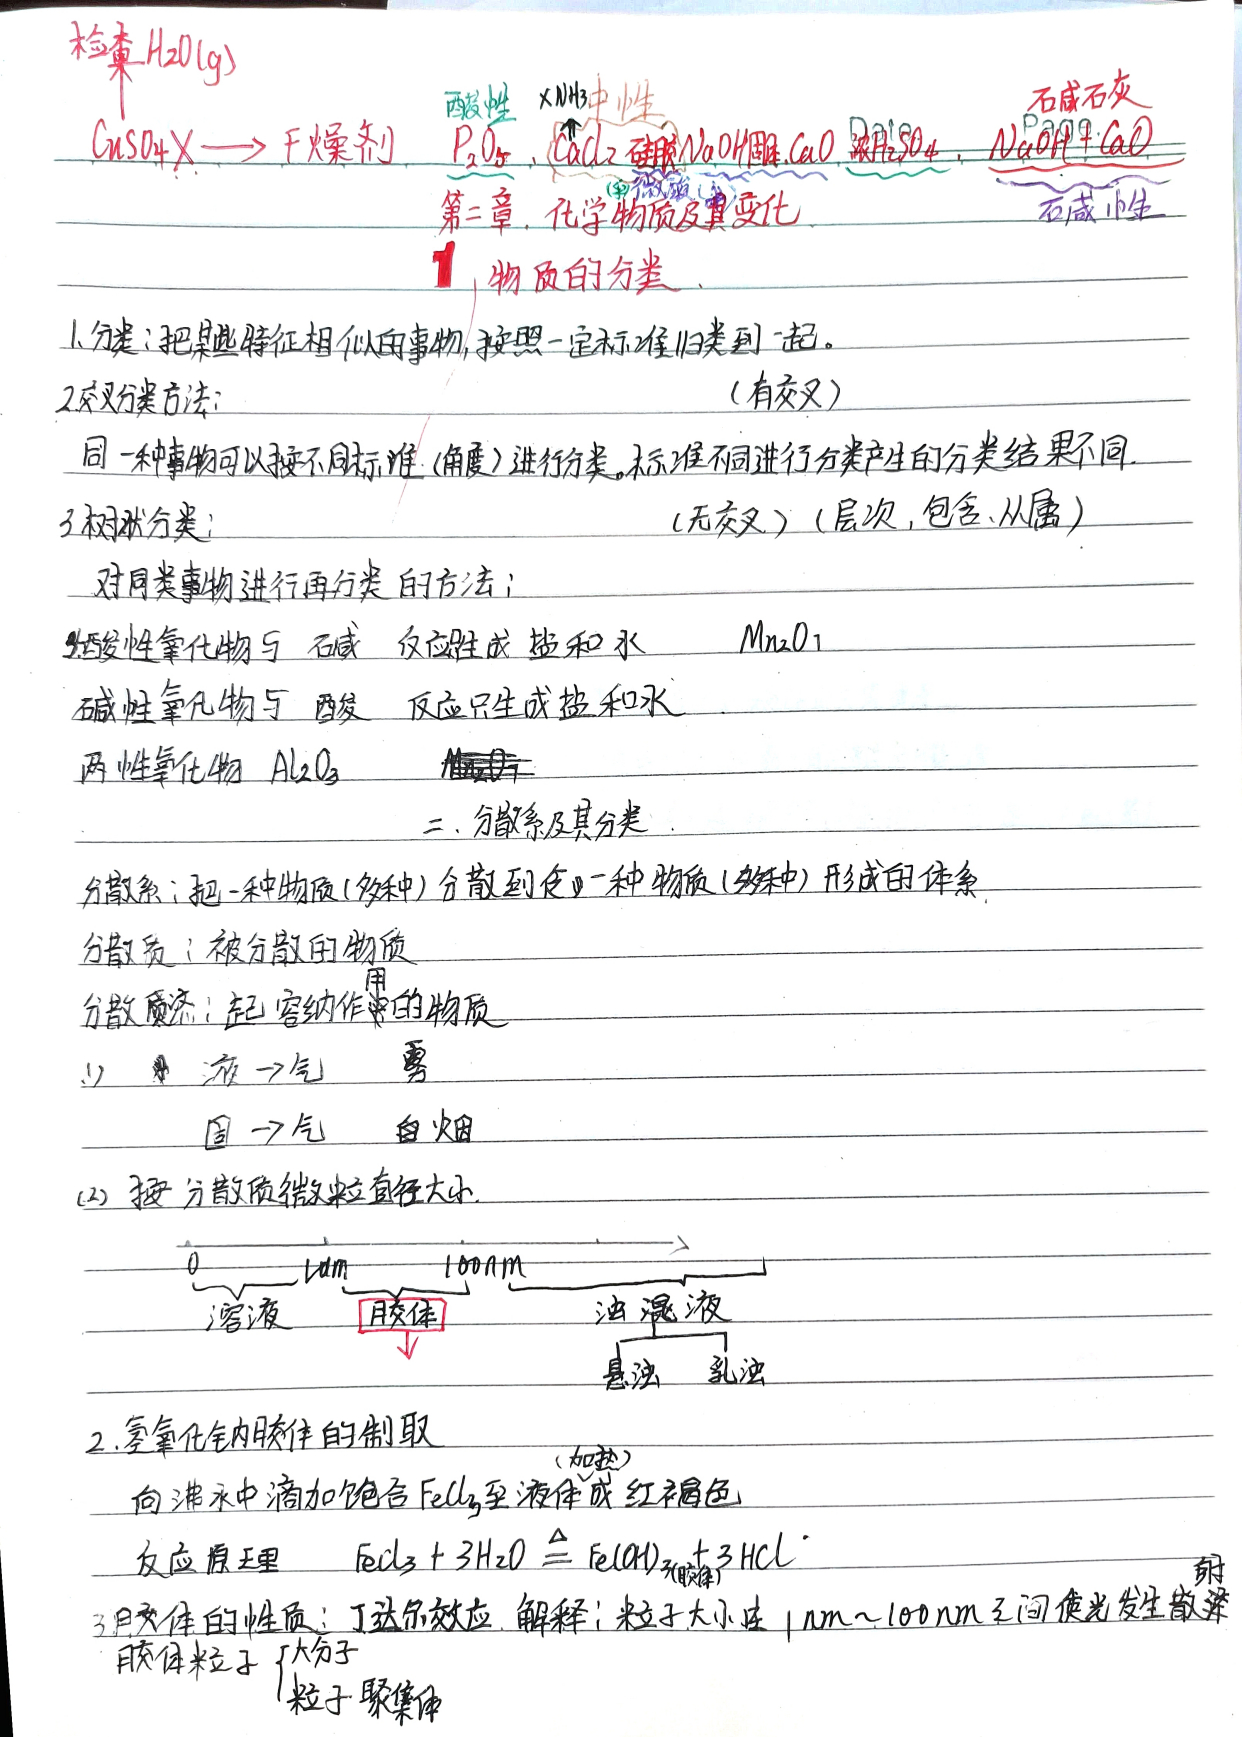 检查H2O(g)
酸性 ×NH3 中性 石咸石灰
CuSO4 X → 干燥剂 P2O5、CaCl2 硅胶 NaOH固体、CaO 浓H2SO4、NaOH+CaO
微酸 石咸性
第二章、化学物质及其变化
1、物质的分类.
1.分类：把某些特征相似的事物，按照一定标准归类到一起。
2.交叉分类方法： （有交叉）
同一种事物可以按不同标准（角度）进行分类。标准不同进行分类产生的分类结果不同.
3.树状分类： （无交叉）（层次，包含、从属）
对同类事物进行再分类的方法；
酸性氧化物与 石咸 反应只生成 盐和水 Mn2O7
碱性氧化物与 酸 反应只生成盐和水
两性氧化物 Al2O3
二、分散系及其分类.
分散系：把一种物质（多种）分散到 一种物质（多种）形成的体系.
分散质：被分散的物质
分散 ：起容纳作用的物质
(1) 液→气 雾
固→气 白烟
(2) 按分散质微粒直径大小.
0 1nm 100nm
溶液 胶体 浊混液
悬浊 乳浊
2.氢氧化钠胶体的制取
(加热)
向沸水中滴加饱合FeCl3至液体成红褐色
反应原理 FeCl3+3H2O ≜ Fe(OH)3(胶体)+3HCl
3.胶体的性质：丁达尔效应 解释：粒子大小在1nm～100nm之间使光发生散射
胶体粒子 { 大分子
粒子聚集体